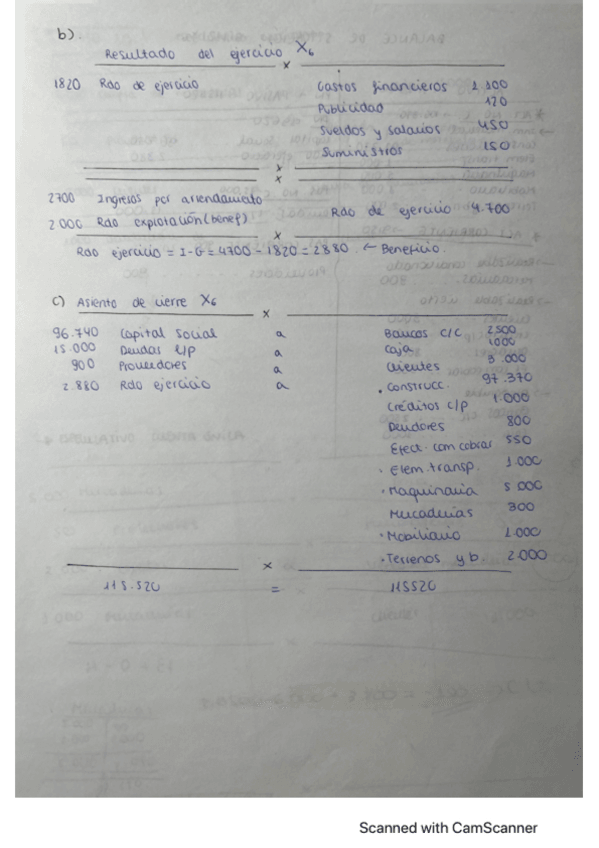 b).
Resultado del ejercicio X6
x
1820 Rdo de ejercicio Gastos financieros 1 100
Publicidad 120
Sueldos y salarios 450
Suministros 150
x
x
2700 Ingresos por arrendamiento
2.000 Rdo explotación (benef) Rdo de ejercicio 4.700
x
Rdo ejercicio = I-G = 4700 - 1820 = 2880. ← Beneficio.
c) Asiento de cierre X6
x
96.740 Capital Social a Bancos C/C 2500
15.000 Deudas L/P a Caja 1000
900 Proveedores a Clientes 3.000
2.880 Rdo ejercicio a . Construcc. 97.370
Créditos c/p 1.000
Deudores 800
Efect. com cobrar 550
. elem. transp. 1.000
. Maquinaria 5 000
Mercaderías 300
. Mobiliario 1.000
. Terrenos y b 2.000
x
115.520 = 115520
Scanned with CamScanner